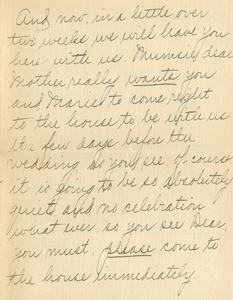 And now, in a little over
two weeks we will have you
here with us. Mumsie, dear
Mother really wants you
and Marie to come right
to the house to be with us
the few days before the
wedding so you see of course
it is going to be so absolutely
quiet and no celebration
what ever so you see Dear,
you must, please come to
the house immediately.